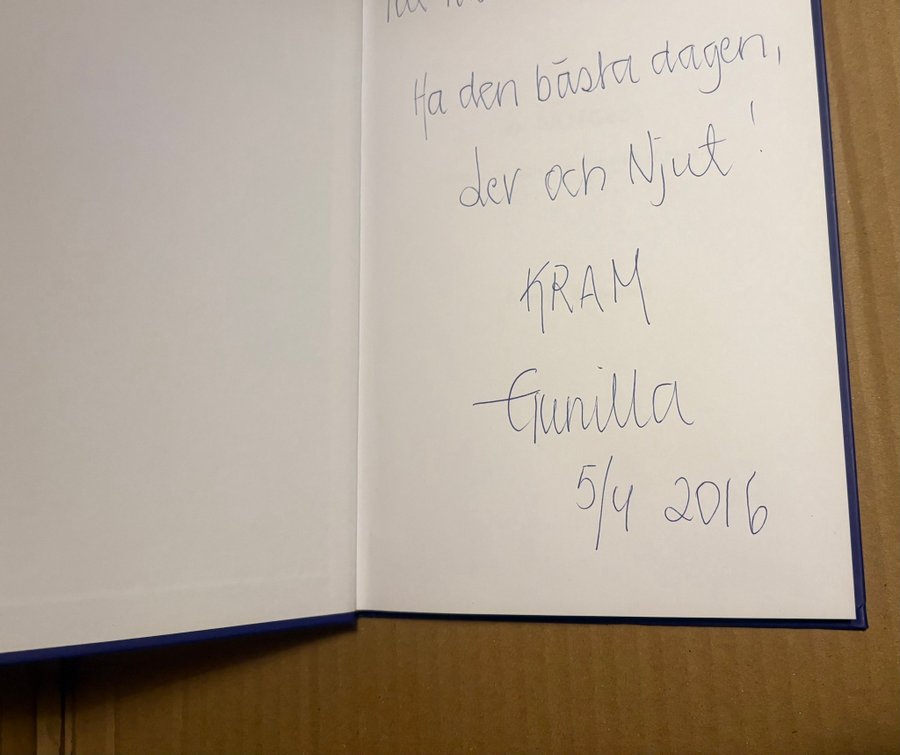 Ha den bästa dagen,
lev och Njut!
KRAM
Gunilla
5/4 2016